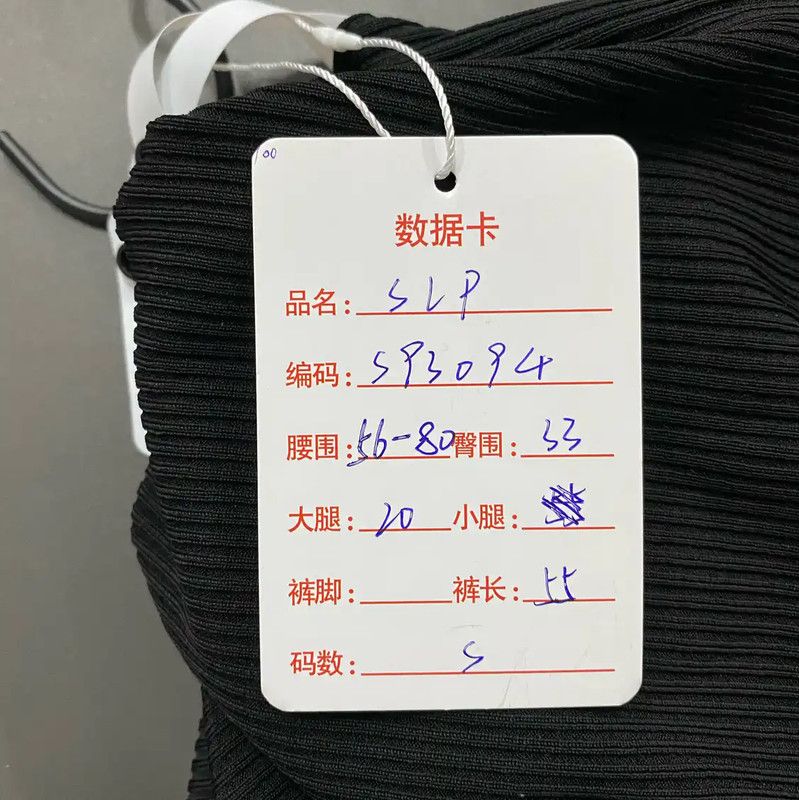 00
数据卡
品名: SLP
编码: S93094
腰围: 56-80 臀围: 33
大腿: 20 小腿:
裤脚: 裤长: 55
码数: S